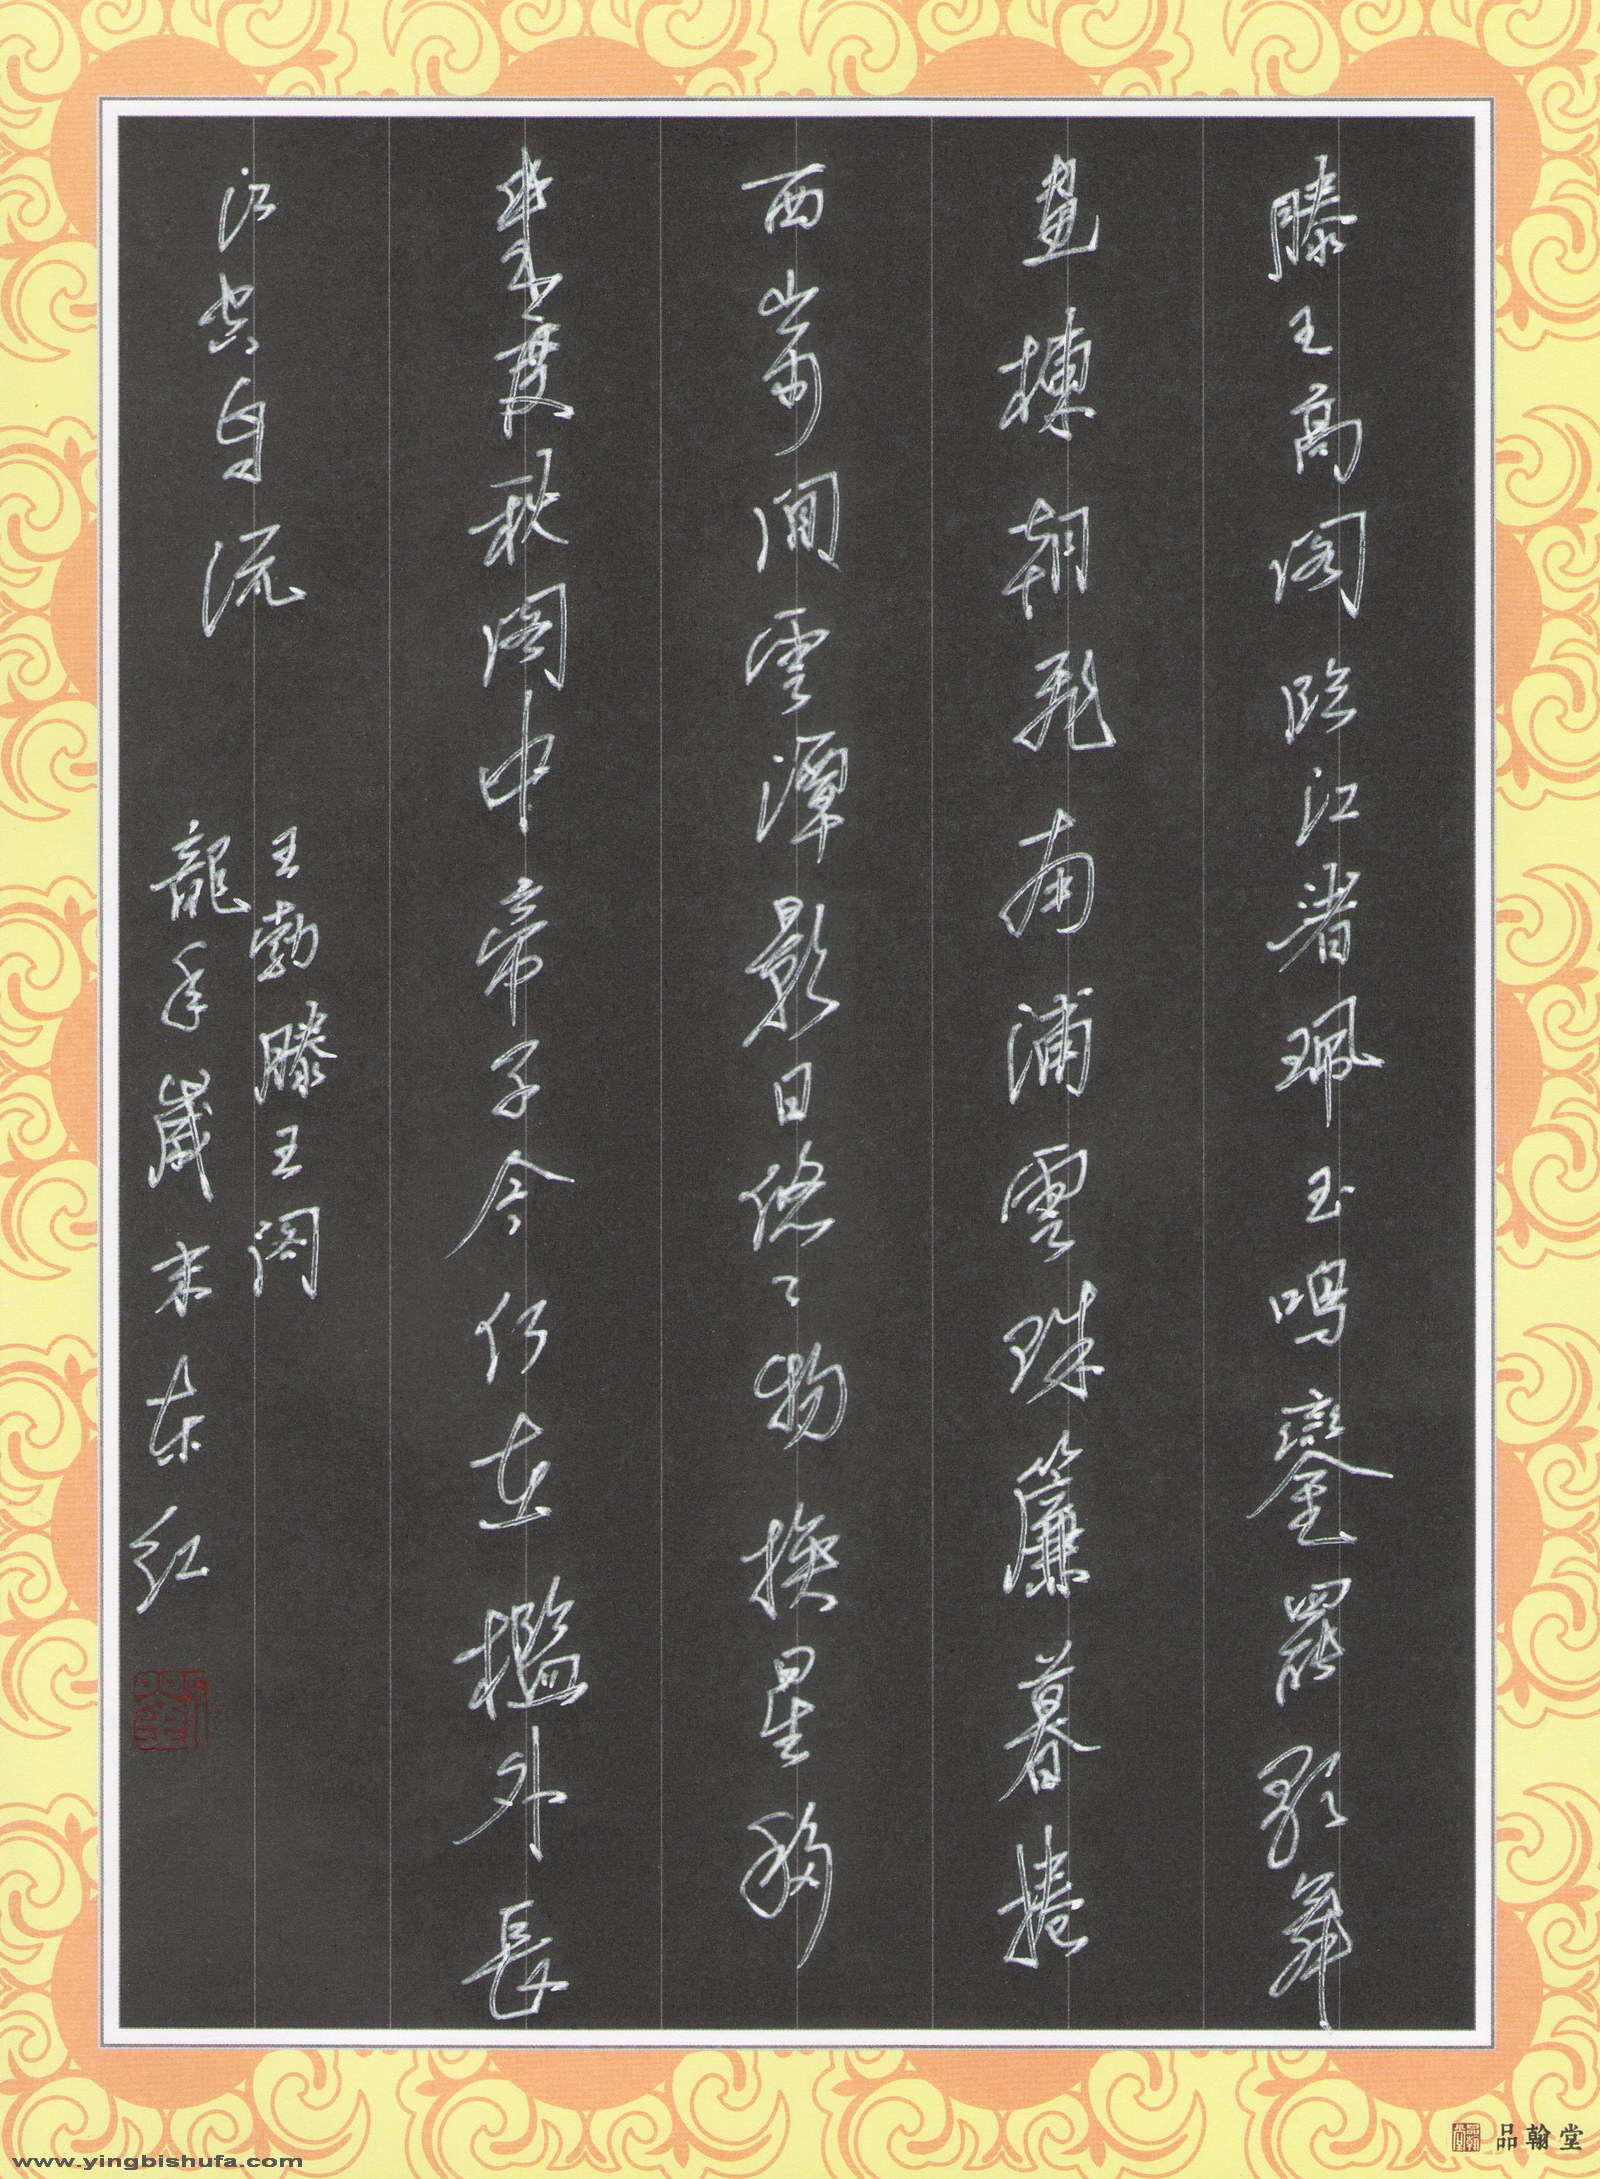 滕王高阁临江渚珮玉鸣鑾罷歌舞
畫棟朝飛南浦雲珠簾暮捲
西山雨閒雲潭影日悠々物換星移
幾度秋阁中帝子今何在檻外長
江空自流
王勃滕王阁
龍年歲末东红
品翰堂
www.yingbishufa.com